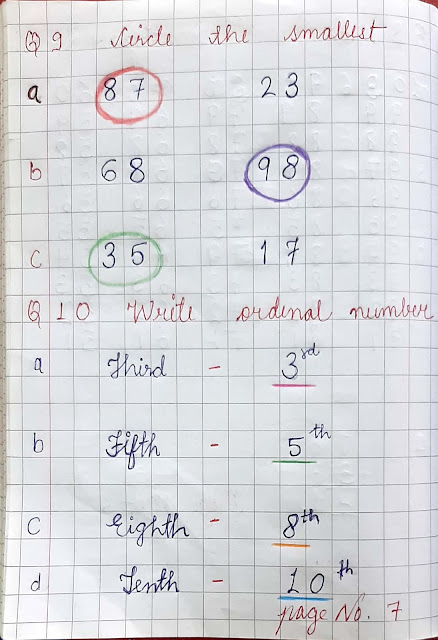 Q 9 Circle the smallest
a 87 23
b 68 98
c 35 17
Q 10 Write ordinal number
a Third - 3rd
b Fifth - 5th
c Eighth - 8th
d Tenth - 10th
page No. 7